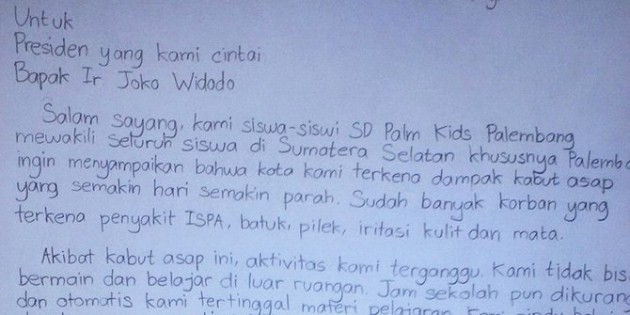 Untuk
Presiden yang kami cintai
Bapak Ir Joko Widodo
Salam sayang, kami siswa-siswi SD Palm Kids Palembang
mewakili seluruh siswa di Sumatera Selatan khususnya Palemba
ingin menyampaikan bahwa kota kami terkena dampak kabut asap
yang semakin hari semakin parah. Sudah banyak korban yang
terkena penyakit ISPA, batuk, pilek, iritasi kulit dan mata.
Akibat kabut asap ini, aktivitas kami terganggu. Kami tidak bis
bermain dan belajar di luar ruangan. Jam sekolah pun dikurang
dan otomatis kami tertinggal materi pelajaran